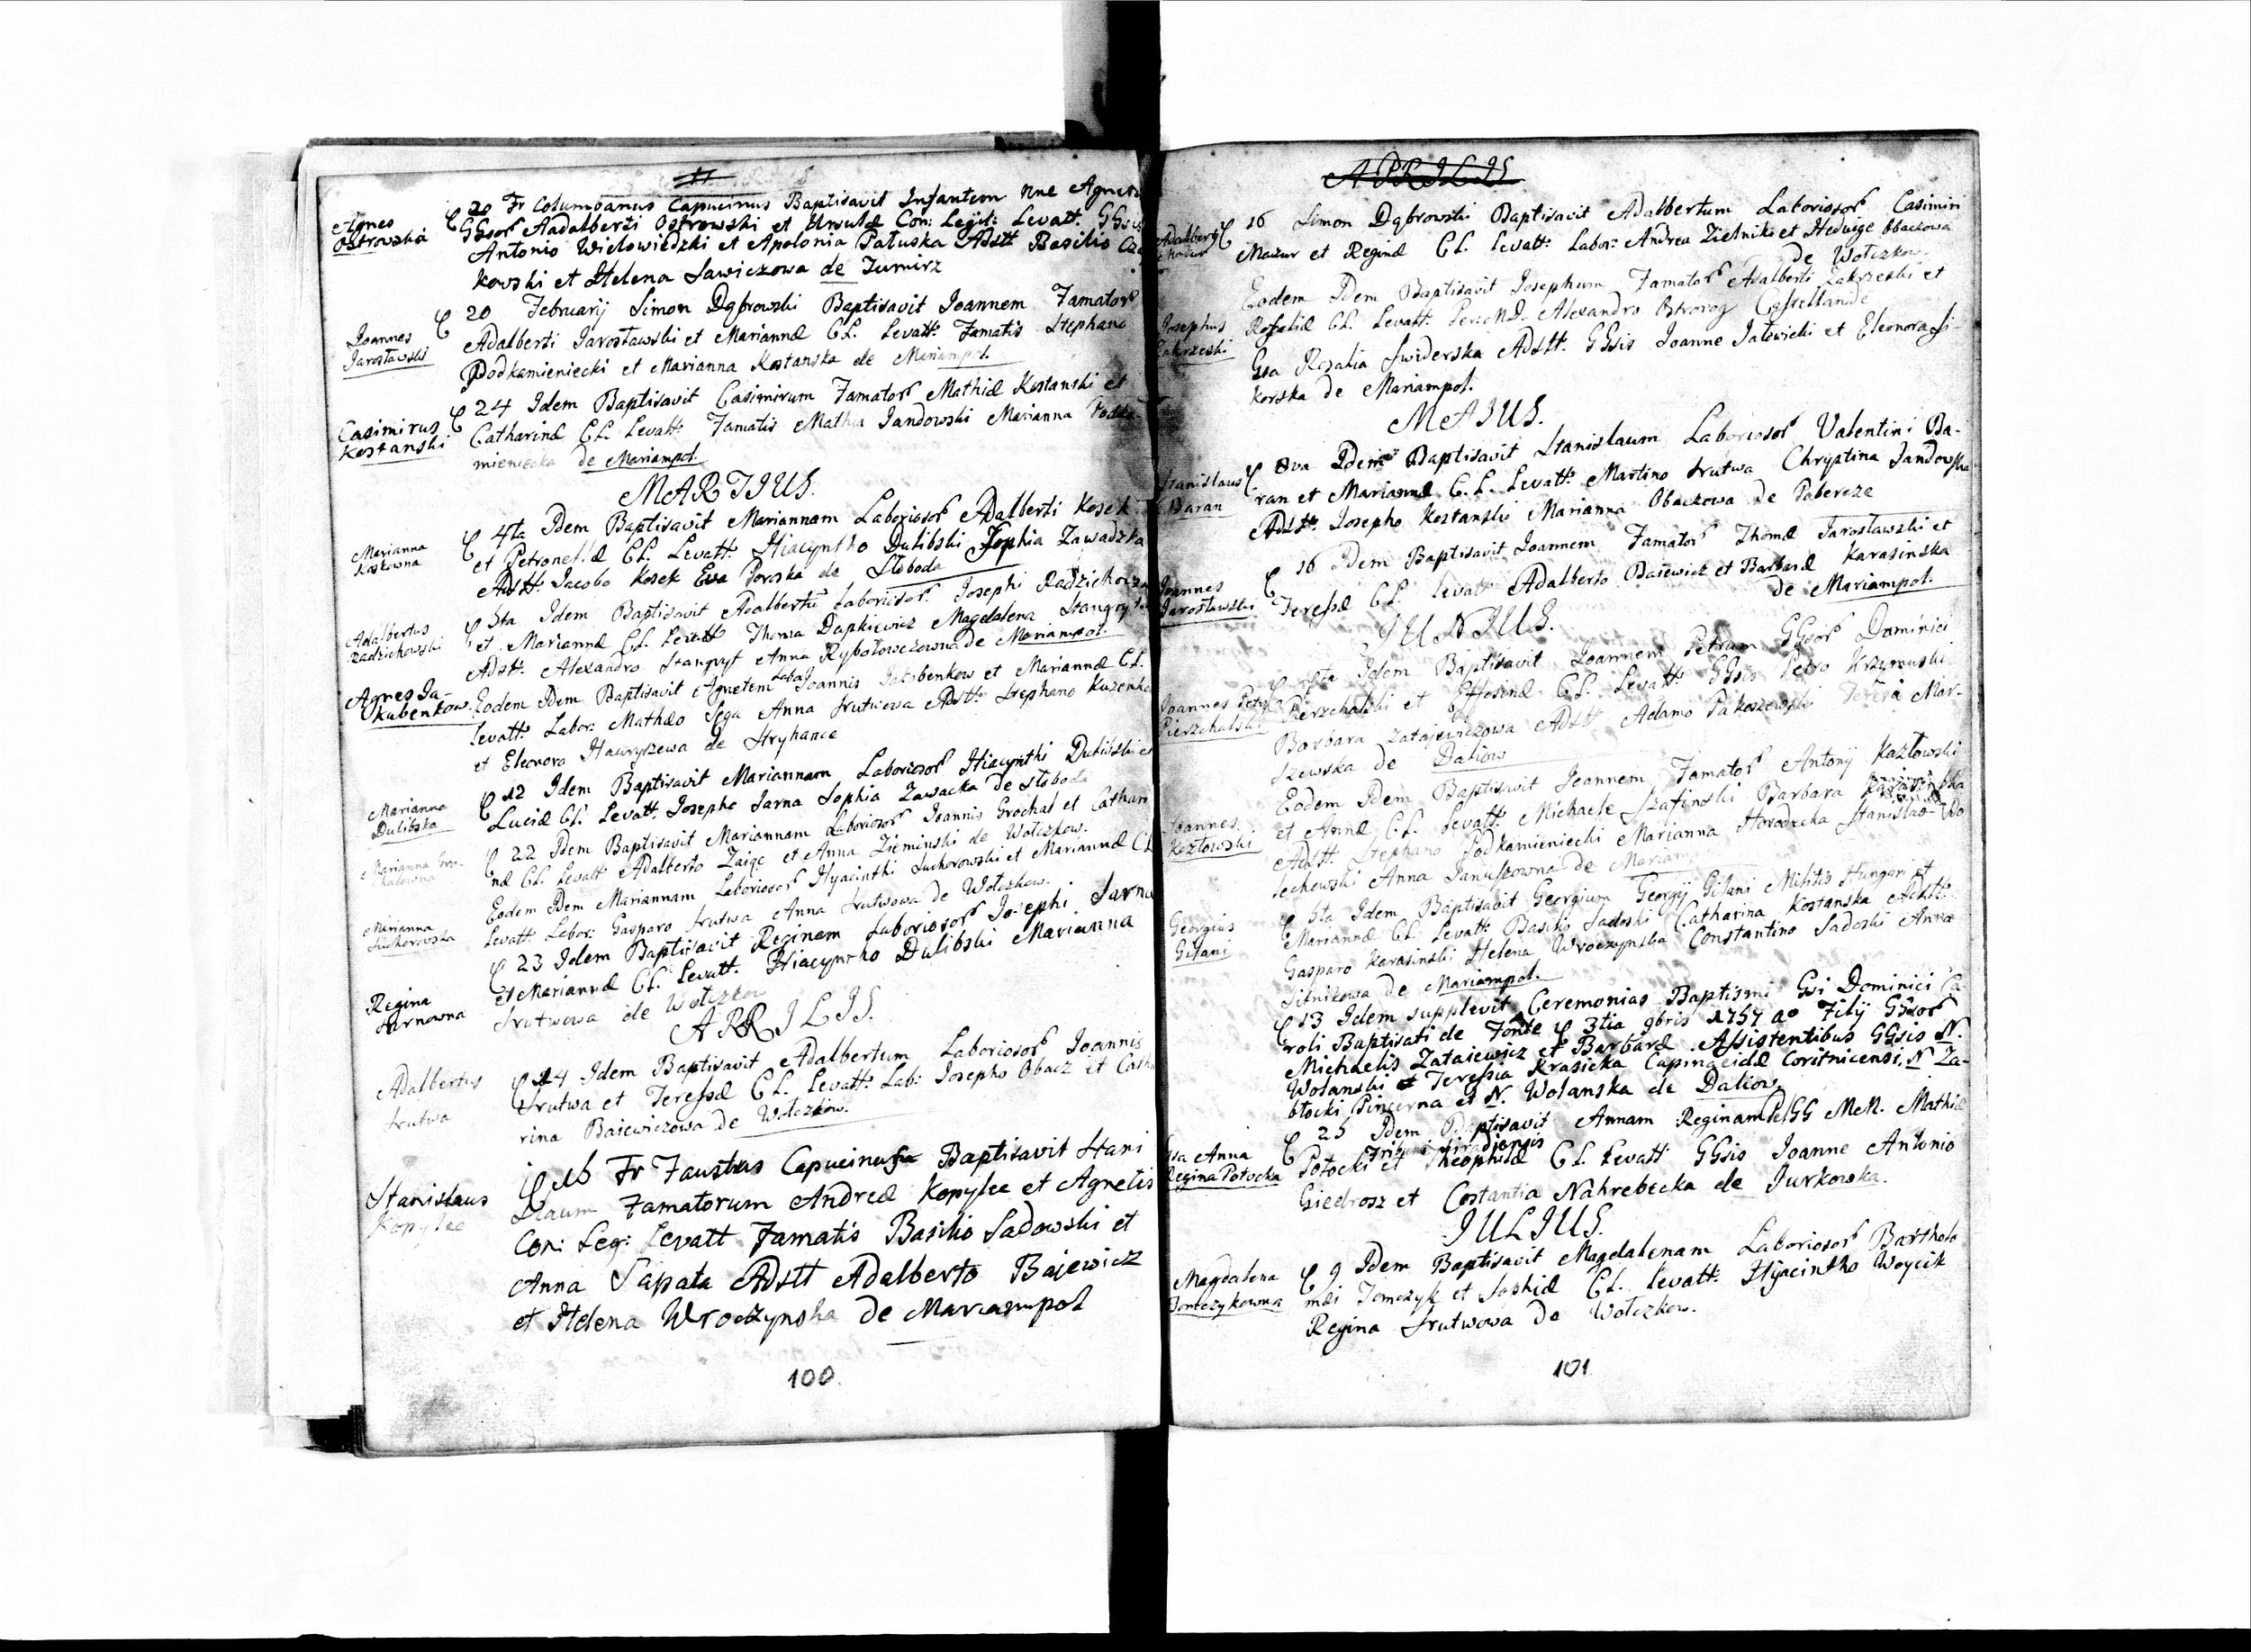 Agnes
Ostrowska
20 Fr Columbanus Capucinus Baptisavit Infantem nne Agnete
GGsor Aadalberti Ostrowski et Ursulæ Con: Legit: Levatt. GGsis
Antonio Wielowiedzki et Apolonia Patuska Adstt Basilio
kowski et Helena Sawiczowa de Jumirz
Joannes
Jarosławski
20 February Simon Dąbrowski Baptisavit Joannem Famator
Adalberti Jarosławski et Mariannæ CL. Levatt: Famatis Stephano
Podkamieniecki et Marianna Kostanska de Mariampol.
Casimirus
Kostanski
24 Idem Baptisavit Casimirum Famator Mathiæ Kostanski et
Catharinæ CL. Levatt: Famatis Mathia Jandowski Marianna
mieniecka de Mariampol.
MARTIUS.
Marianna
Koskowna
4ta Idem Baptisavit Mariannam Laboriosor Adalberti Kosek
et Petronellæ CL. Levatt: Hiacyntho Dulibski Sophia Zawadzka
Adstt: Jacobo Kosek Eva Poroska de Słoboda
Adalbertus
Radzichowski
5ta Idem Baptisavit Adalbertū Laboriosor Josephi
et Mariannæ CL. Levatt Thoma Dapkiewicz Magdalena
Adstt: Alexandro Stanpyt Anna Rybołowczowna de Mariampol.
Agnes Ja-
kubenkow.
Eodem Idem Baptisavit Agnetem Labo Joannis Jakubenkow et Mariannæ CL.
levatt: Labor: Mathæo Sega Anna Srutwowa Adstt: Stephano
et Eleonora Hawryszewa de Stryhance
Marianna
Dulibska
12 Idem Baptisavit Mariannam Laboriosor Hiacynthi Dulibski et
Luciæ CL. Levatt. Josepho Sarna Sophia Zawacka De Słoboda
Marianna Gro-
chalowna
22 Idem Baptisavit Mariannam Laboriosor Joannis Grochal et Cathari
næ CL. Levatt Adalberto Zaiąc et Anna Zieminski de Wołczkow.
Marianna
Suchorowska
Eodem Idem Mariannam Laboriosor Hyacinthi Suchorowski et Mariannæ CL
Levatt: Labor: Gasparo Srutwa Anna Srutwowa de Wołczkow.
Regina
Sarnowna
23 Idem Baptisavit Reginam Laboriosor Josephi Sarna
et Mariannæ CL. Levatt. Hiacyntho Dulibski Marianna
Srutwowa de Wołczkow
APRILIS.
Adalbertus
Srutwa
14 Idem Baptisavit Adalbertum Laboriosor Joannis
Srutwa et Teressæ CL. Levatt: Lab: Josepho Obacz et Catha
rina Baiewiczowa de Wołczkow.
Stanislaus
Kopylec
15 Fr Faustus Capucinus Baptisavit Stani
slaum Famatorum Andreæ Kopylec et Agnetis
Con: Leg: Levatt Famatis Basilio Sadowski et
Anna Sapata Adstt Adalberto Bajewicz
et Helena Wroczynska de Mariampol
100
APRILIS
Adalbert
Mazur
16 Simon Dąbrowski Baptisavit Adalbertum Laboriosor Casimiri
Mazur et Reginæ CL. Levatt: Labor: Andrea Zielnik et Hedvige Obaczowa
de Wołczkow.
Josephus
Zakrzeski
Eodem Idem Baptisavit Josephum Famator Adalberti Zakrzeski et
Rosaliæ CL. Levatt: Alexandro Ostrorog Castellanide
Gsa Rozalia Swiderska Adstt. GGsis Joanne Jalowicki et Eleonora Si
korska de Mariampol.
MAJUS.
Stanislaus
Baran
8va Idem Baptisavit Stanislaum Laboriosor Valentini Ba-
ran et Mariannæ C.L. Levatt: Martino Srutwa Chryztina Jandowska
Adstt: Josepho Kostanski Marianna Obaczowa de Pobereze
Joannes
Jarosławski
16 Idem Baptisavit Joannem Famator Thomæ Jarosławski et
Teressæ CL. Levatt Adalberto Baiewicz et Barbaræ Karasinska
de Mariampol.
JUNIUS.
Joannes Petr
Pierzchalski
Idem Baptisavit Joannem Petrum GGsor Dominici
Pierzchalski et Effosinæ CL. Levatt: GGsis Petro
Barbara Zataiewiczowa Adstt: Adamo Pakoszewski Teresa Mar-
szewska de Daliow
Joannes
Kozłowski
Eodem Idem Baptisavit Joannem Famator Antony Kozłowski
et Annæ CL. Levatt: Michaele Szafinski Barbara Karasinska
Adstt: Stephano Podkamieniecki Marianna Horodecka Stanislao Wo
lechowski Anna Janussowna de Mariam
Georgius
Gilani
5ta Idem Baptisavit Georgium Georgy Gilani Militis Hungari et
Mariannæ CL. Levatt Basilio Sadoski Catharina Kostanska Adstt:
Gasparo Karasinski Helena Wroczynska Constantino Sadoski Anna
Sitnikowa de Mariampol.
13 Idem supplevit Ceremonias Baptismi Gsi Dominici Ca
roli Baptisati de Fonte 3tia 9bris 1757 ao Filij GGsor
Michaelis Zataiewicz et Barbaræ Assistentibus GGsis N.
Wolanski et Teressia Krasicka Capinaeidæ Coritnicensi, N Za-
błocki Pincerna et N. Wolanska de Daliow.
Gsa Anna
Regina Potocka
25 Idem Baptisavit Annam Reginam PeIGG McN. Mathiæ
Tribuni
Potocki et Theophilæ CL. Levatt GGsis Joanne Antonio
Giedrosz et Costantia Nahrebecka de Jurkowka.
JULIUS.
Magdalena
Tomczykowna
9 Idem Baptisavit Magdalenam Laboriosor Bartholo
mæi Tomczyk et Sophiæ CL. Levatt: Hyacintho Woycik
Regina Srutwowa De Wołczkow.
101